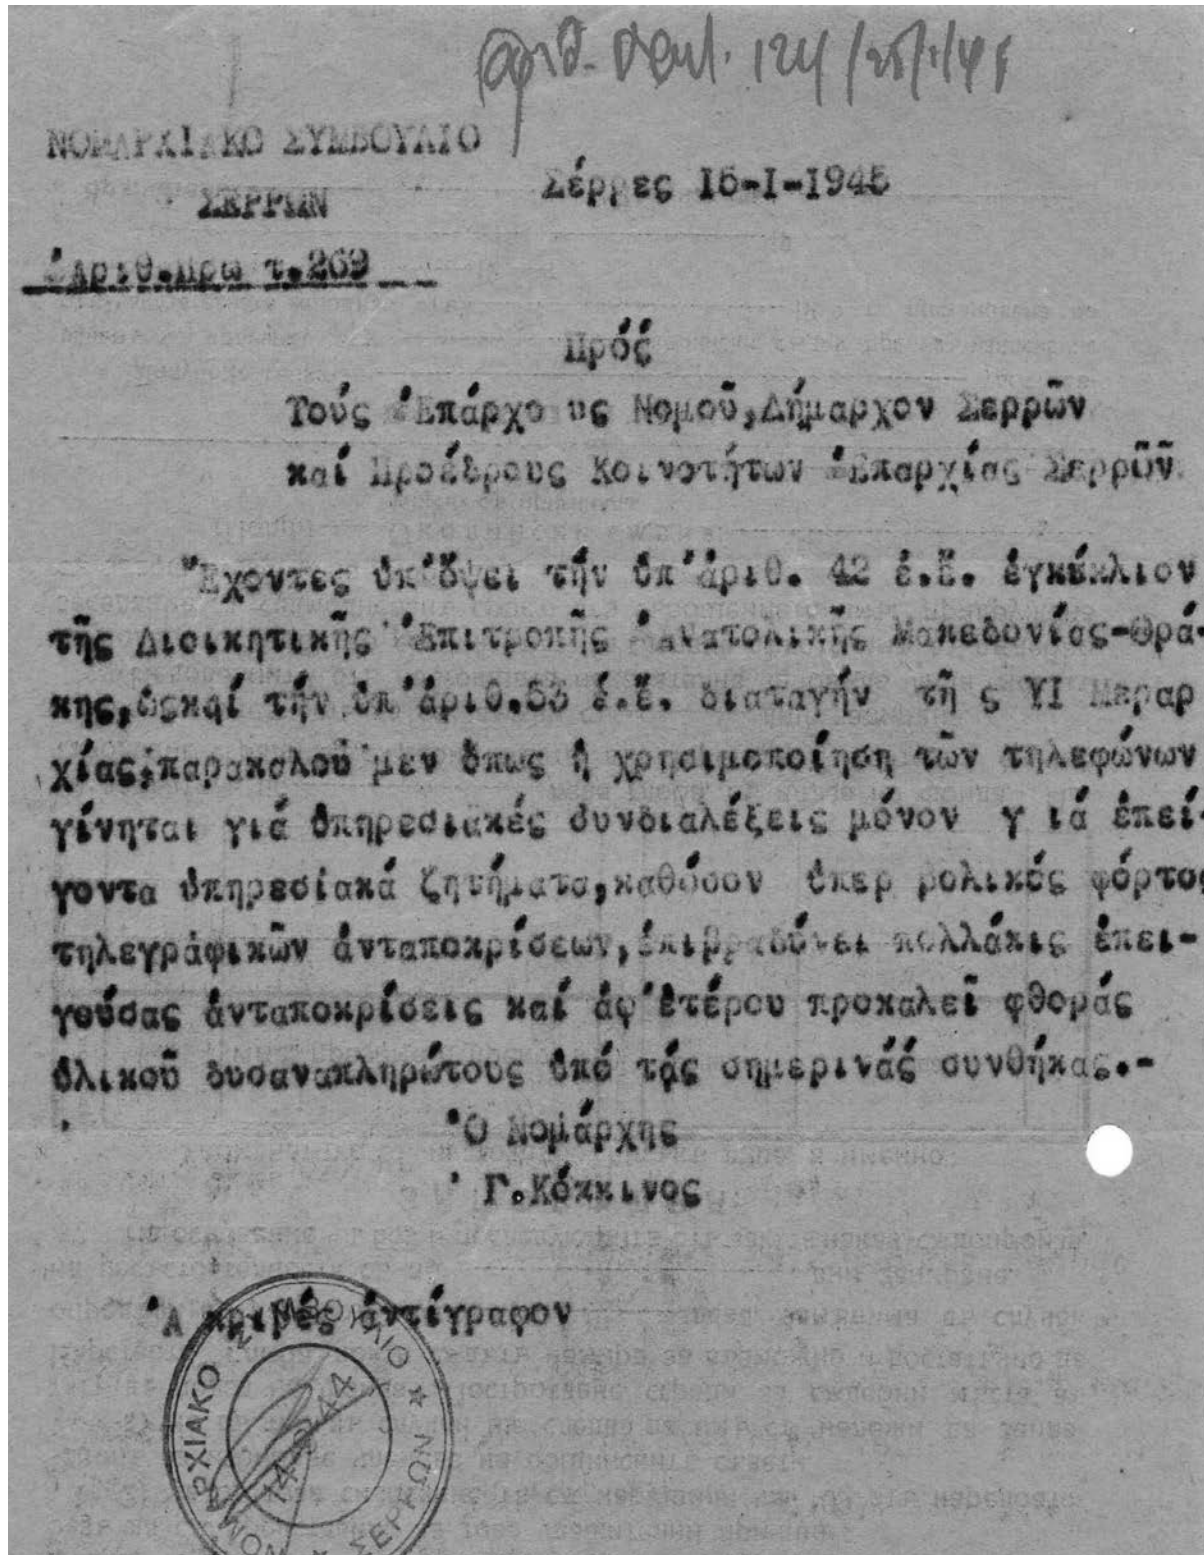 αριθ. πρωτ. 124/25/1/45
ΝΟΜΑΡΧΙΑΚΟ ΣΥΜΒΟΥΛΙΟ
Σέρρες 15-Ι-1945
ΣΕΡΡΩΝ
Ἀριθ.Πρω τ.269
Πρός
Τούς Ἐπάρχο υς Νομοῦ,Δήμαρχον Σερρῶν
καί Προέδρους Κοινοτήτων Ἐπαρχίας Σερρῶν
Ἔχοντες ὑπ'ὄψει τήν ὑπ'ἀριθ. 42 ἐ.ἔ. ἐγκύκλιον
τῆς Διοικητικῆς Ἐπιτροπῆς Ἀνατολικῆς Μακεδονίας-Θρά-
κης,ὡςκαί τήν ὑπ'ἀριθ.53 ἐ.ἔ. διαταγήν τῆ ς ΥΙ Μεραρ
χίας,παρακαλοῦ μεν ὅπως ἡ χρησιμοποίηση τῶν τηλεφώνων
γίνηται γιά ὑπηρεσιακές συνδιαλέξεις μόνον γ ιά ἐπεί-
γοντα ὑπηρεσίακά ζητήματα,καθόσον ὑπερ βολικός φόρτος
τηλεγράφικῶν ἀνταποκρίσεων,ἐπιβραδύνει πολλάκις ἐπει-
γούσας ἀνταποκρίσεις καί ἀφ'ἑτέρου προκαλεῖ φθοράς
ὑλικοῦ δυσαναπληρώτους ὑπό τάς σημερινάς συνθήκας.-
Ὁ Νομάρχης
Γ.Κόκκινος
Ἀ κριβές ἀντίγραφον
ΝΟΜΑΡΧΙΑΚΟ ΣΥΜΒΟΥΛΙΟ ★ ΣΕΡΡΩΝ ★